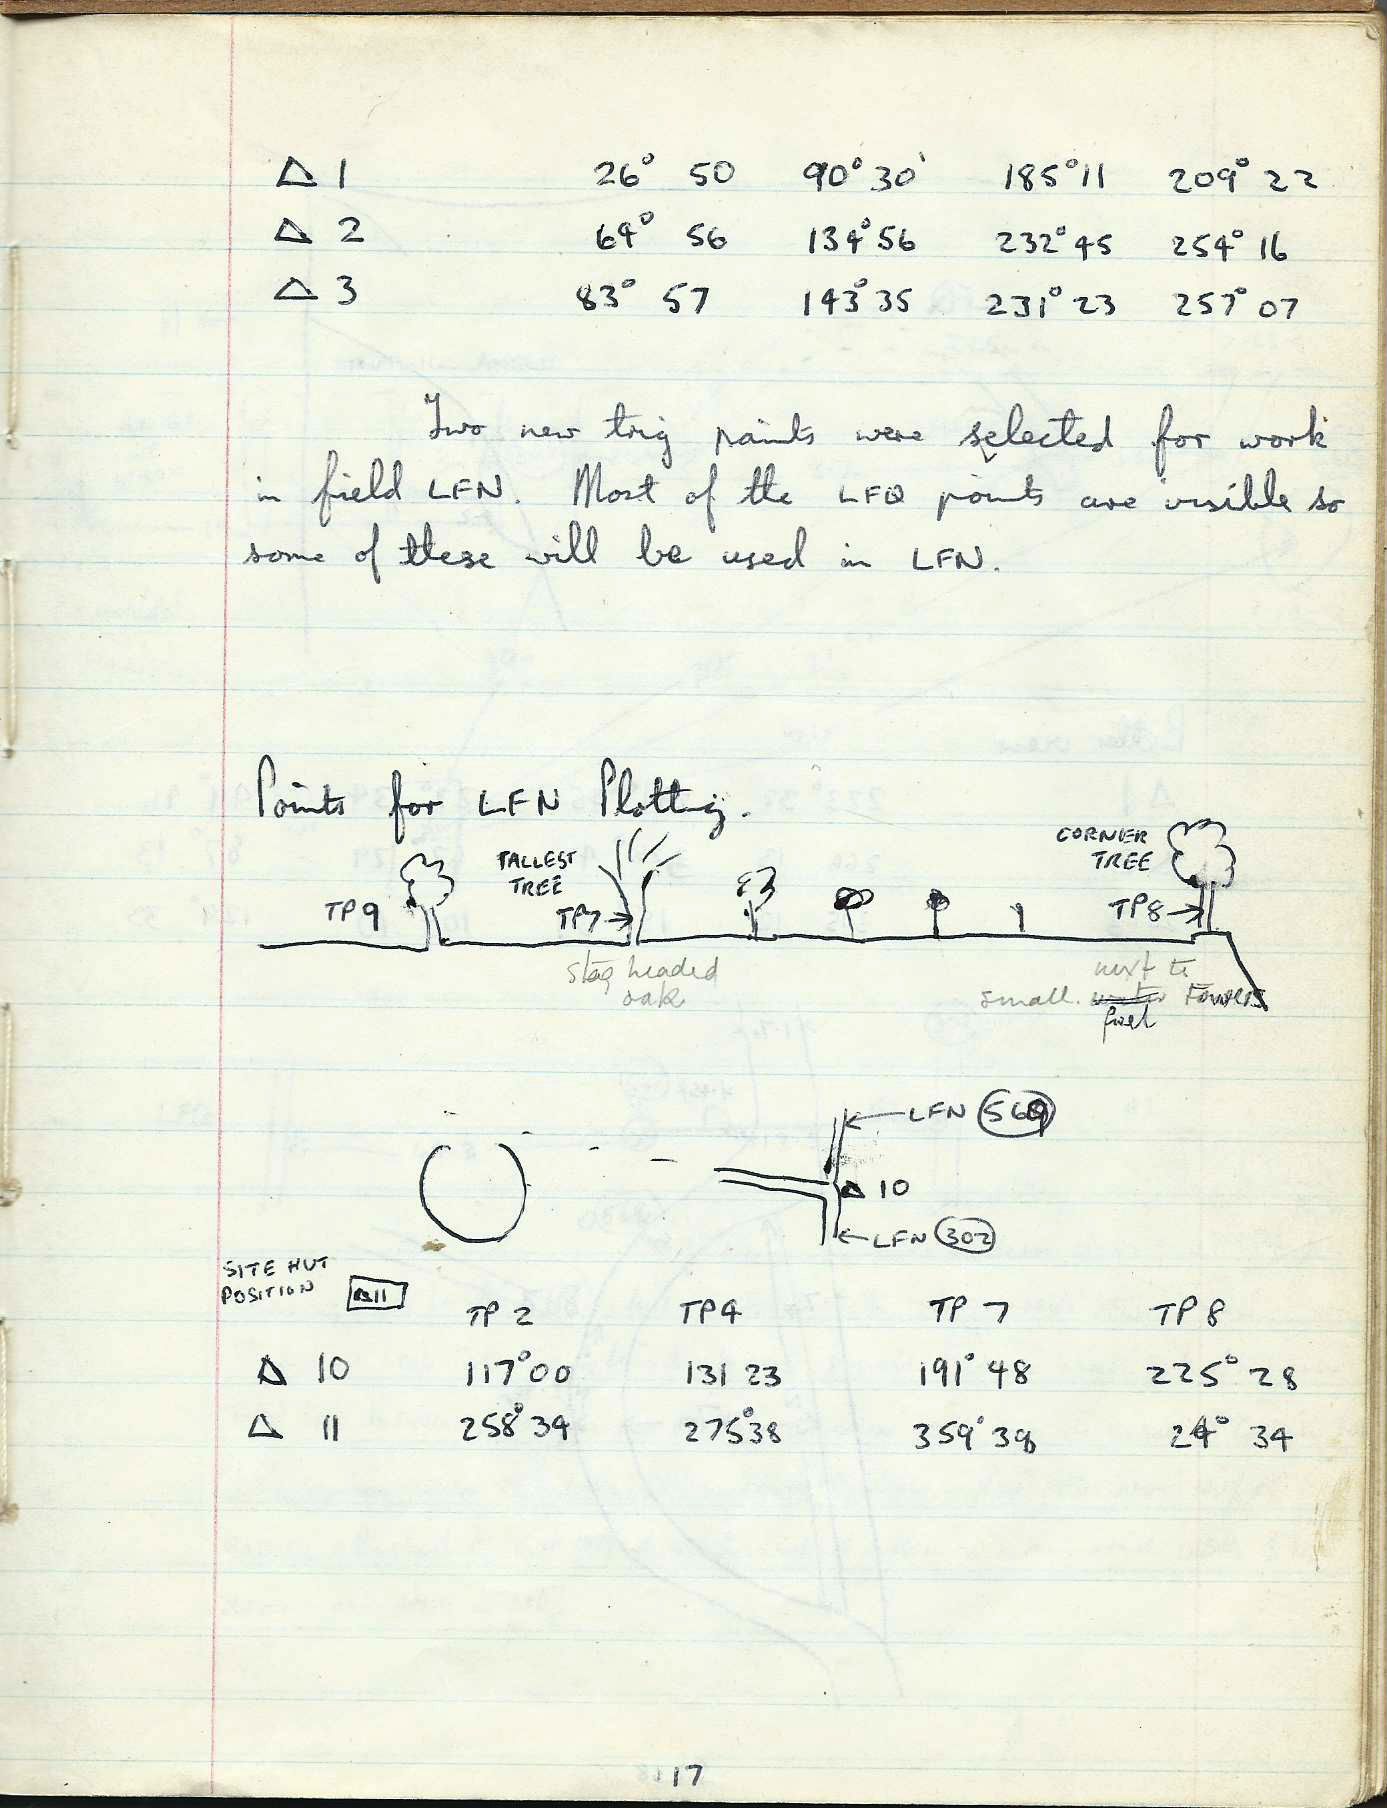 △ 1 26° 50 90° 30' 185° 11 209° 22
△ 2 64° 56 134° 56 232° 45 254° 16
△ 3 83° 57 143° 35 231° 23 257° 07
Two new trig points were selected for work
in field LFN. Most of the LFQ points are visible so
some of these will be used in LFN.
Points for LFN Plotting.
CORNER
TREE
TALLEST
TREE
TP9
TP7
TP8
stag headed
oak
next to
small. Towers
LFN 569
△ 10
LFN 302
SITE HUT
POSITION
△11
TP 2 TP4 TP 7 TP 8
△ 10 117° 00 131 23 191° 48 225° 28
△ 11 258° 34 275° 38 359° 38 24° 34
17